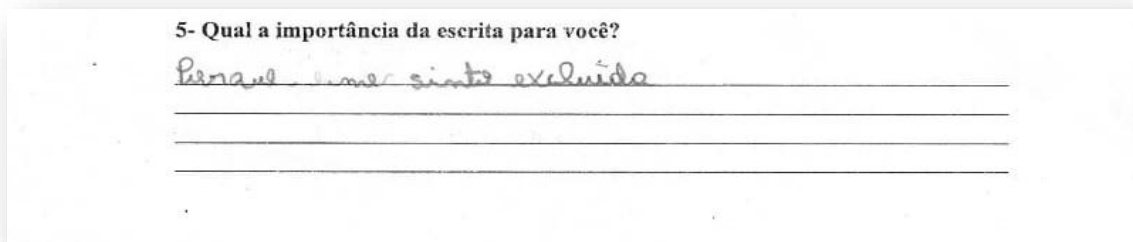 5- Qual a importância da escrita para você?
Porque me sinto excluida